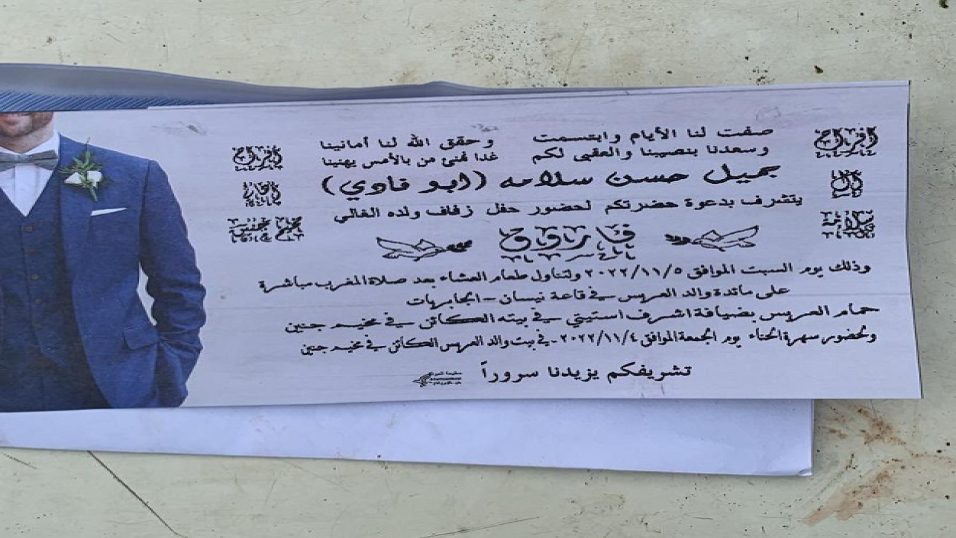 صفت لنا الأيام وابتسمت وحقق الله لنا أمانينا
وسعدنا بنصيبنا والعقبى لكم غدا نهنئ من بالأمس يهنينا
افراح
آل
سلامه
افراح
مخيم جنين
جميل حسن سلامه (ابو فادي)
يتشرف بدعوة حضرتكم لحضور حفل زفاف ولده الغالي
فاروق
وذلك يوم السبت الموافق ٢٠٢٢/١١/٥ ولتناول طعام العشاء بعد صلاة المغرب مباشرة
على مائدة والد العريس في قاعة نيسان - الجابريات
حمام العريس بضيافة اشرف استيتي في بيته الكائن في مخيم جنين
ولحضور سهرة الحناء يوم الجمعة الموافق ٢٠٢٢/١١/٤ - في بيت والد العريس الكائن في مخيم جنين
تشريفكم يزيدنا سروراً